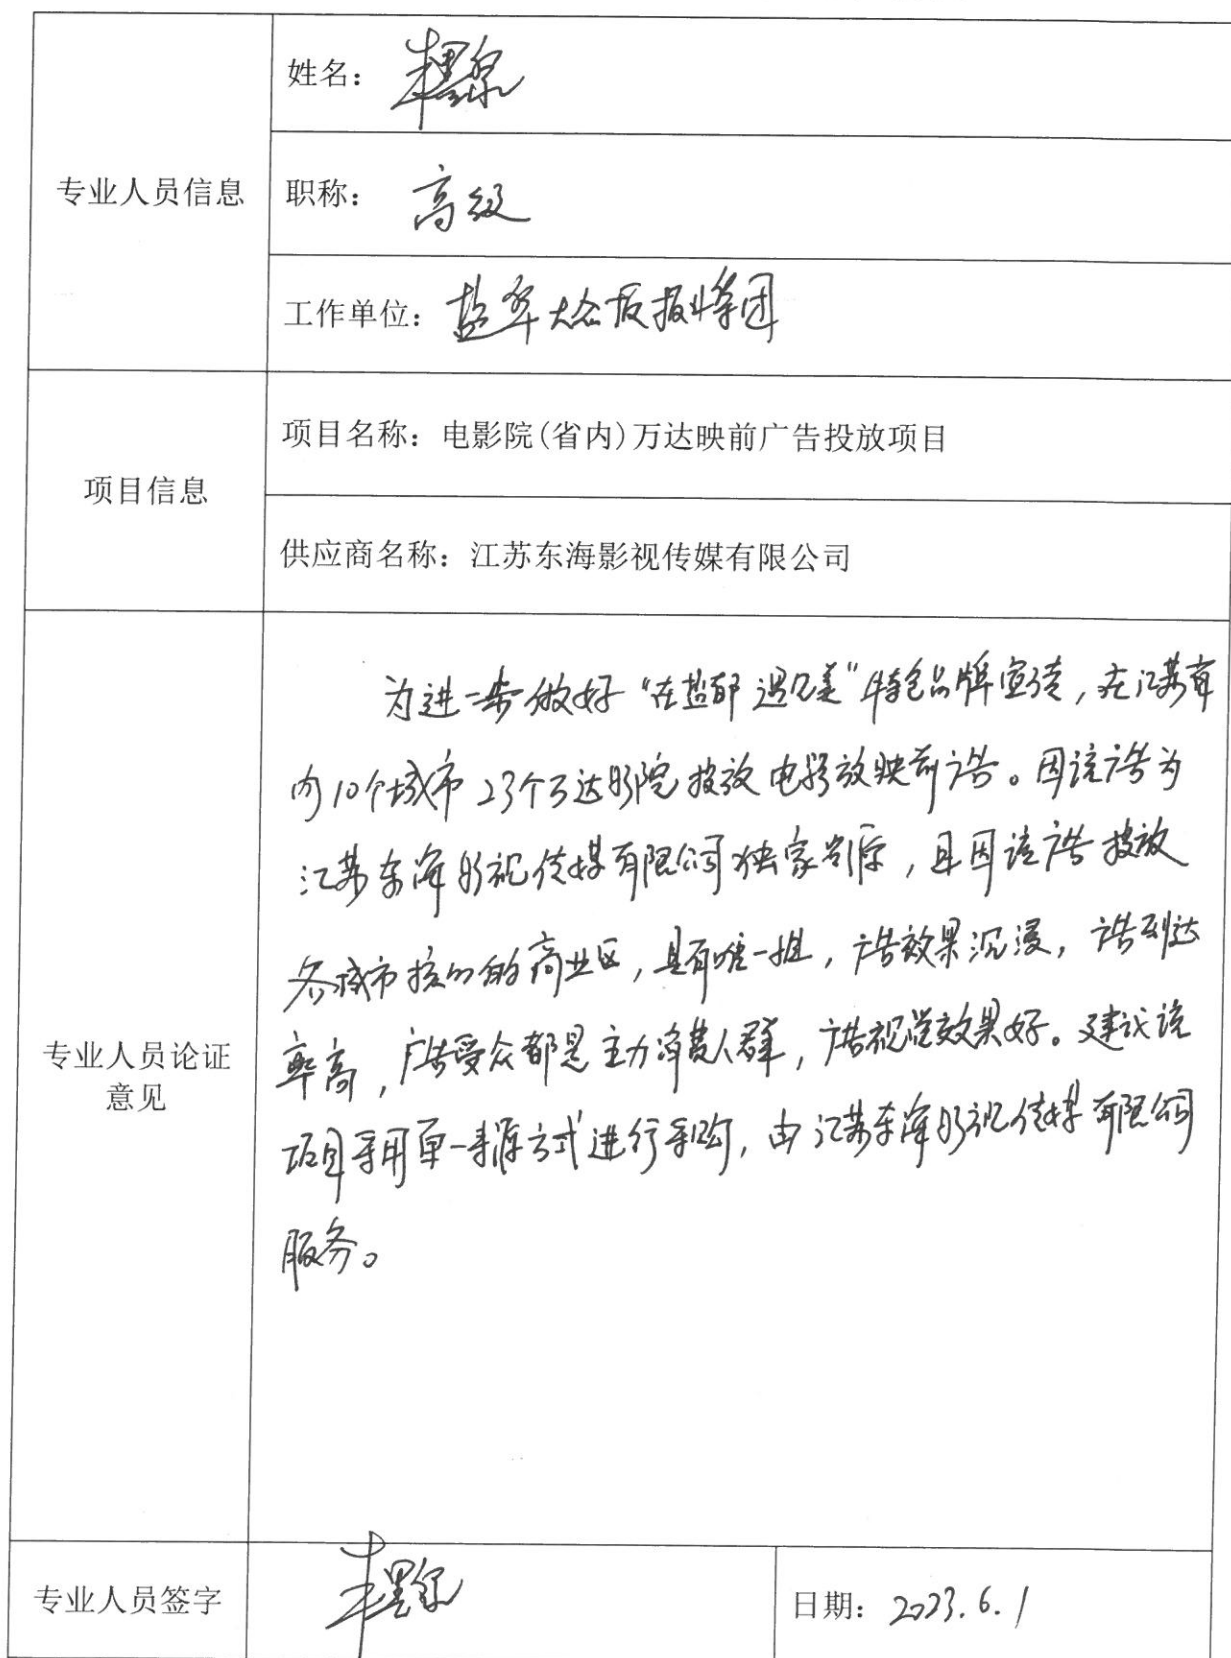 专业人员信息
姓名：
职称：高级
工作单位：盐阜大众报报业集团
项目信息
项目名称：电影院(省内)万达映前广告投放项目
供应商名称：江苏东海影视传媒有限公司
专业人员论证
意见
为进一步做好“在盐都 遇见美”特色品牌宣传，在江苏省
内10个城市23个万达影院投放电影放映前广告。因该广告为
江苏东海影视传媒有限公司独家资源，且因该广告投放
各城市核心的商业区，具有唯一性，广告效果沉浸，广告到达
率高，广告受众都是主力消费人群，广告视觉效果好。建议该
项目采用单一来源方式进行采购，由江苏东海影视传媒有限公司
服务。
专业人员签字
日期：2023.6.1